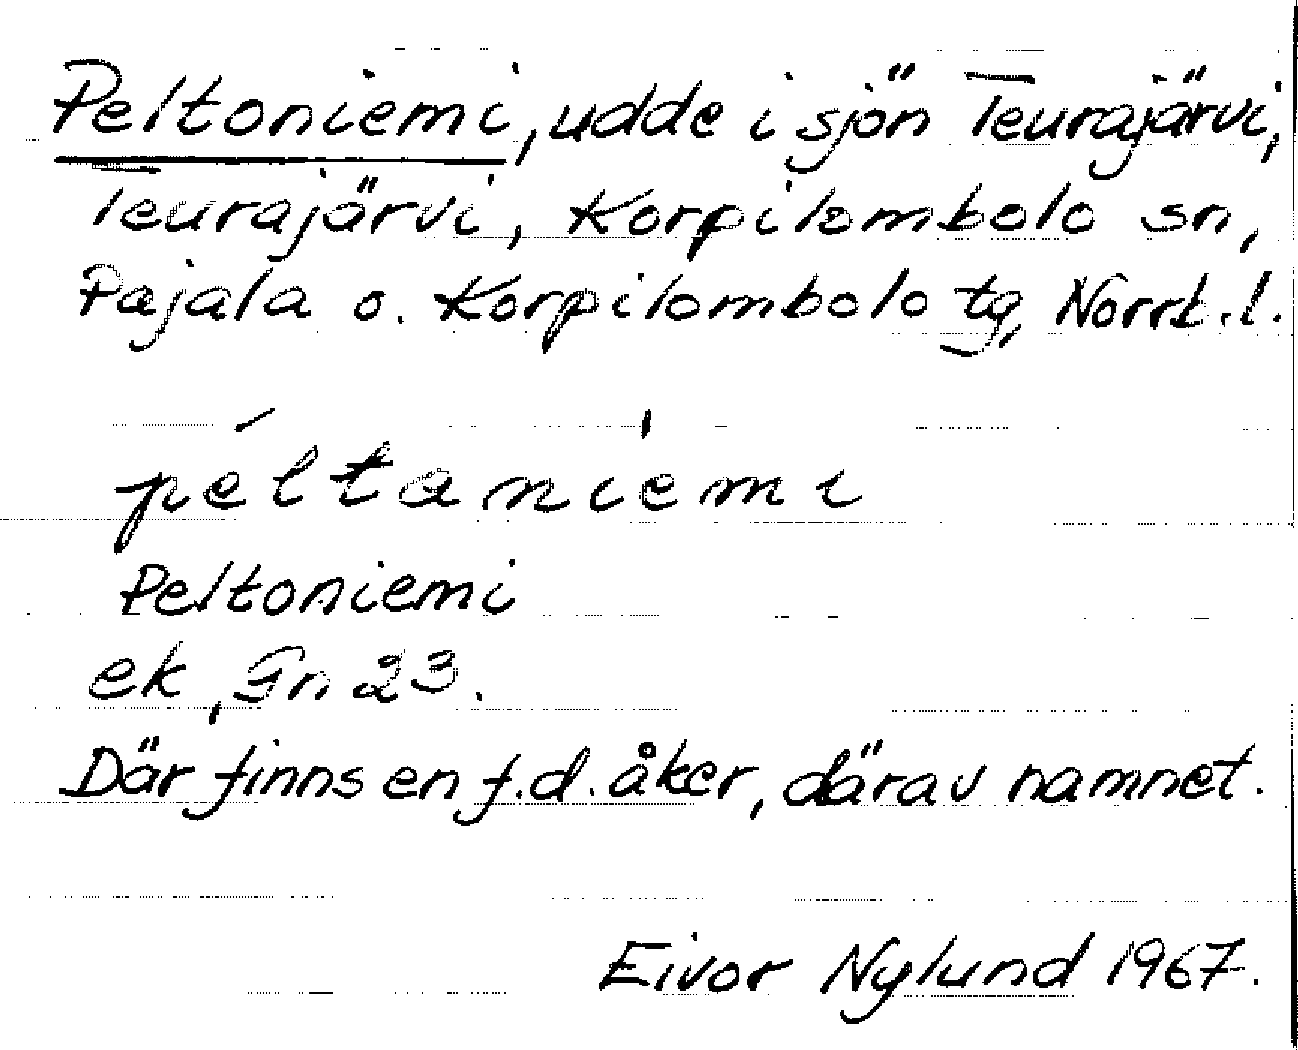 Peltoniemi, udde i sjön Teurajärvi,
Teurajärvi, Korpilombolo sn,
Pajala o. Korpilombolo tg, Norrb.l.
péltaniemi
Peltoniemi
ek, Gn 23.
Där finns en f.d. åker, därav namnet.
Eivor Nylund 1967.